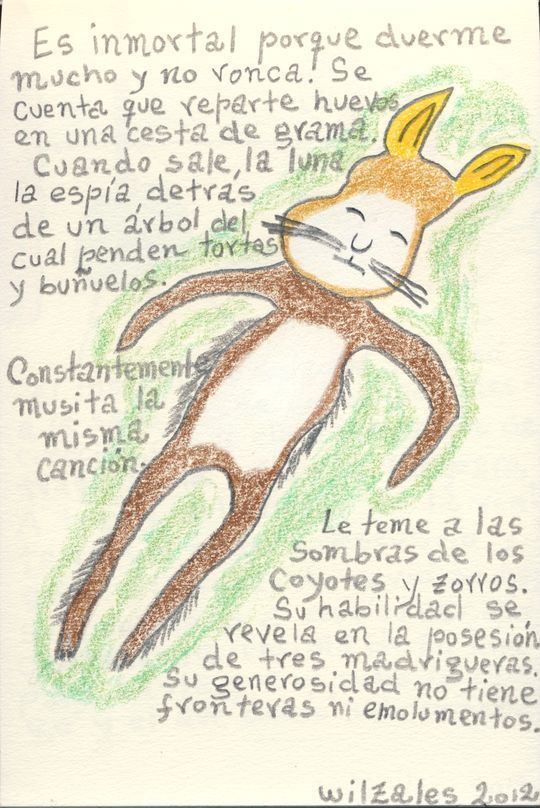 Es inmortal porque duerme
mucho y no ronca. Se
cuenta que reparte huevos
en una cesta de grama.
Cuando sale, la luna
la espía, detras
de un árbol del
cual penden tortas
y buñuelos.
Constantemente
musita la
misma
canción.
Le teme a las
sombras de los
coyotes y zorros.
Su habilidad se
revela en la posesión
de tres madrigueras.
Su generosidad no tiene
fronteras ni emolumentos.
wilzales 2012